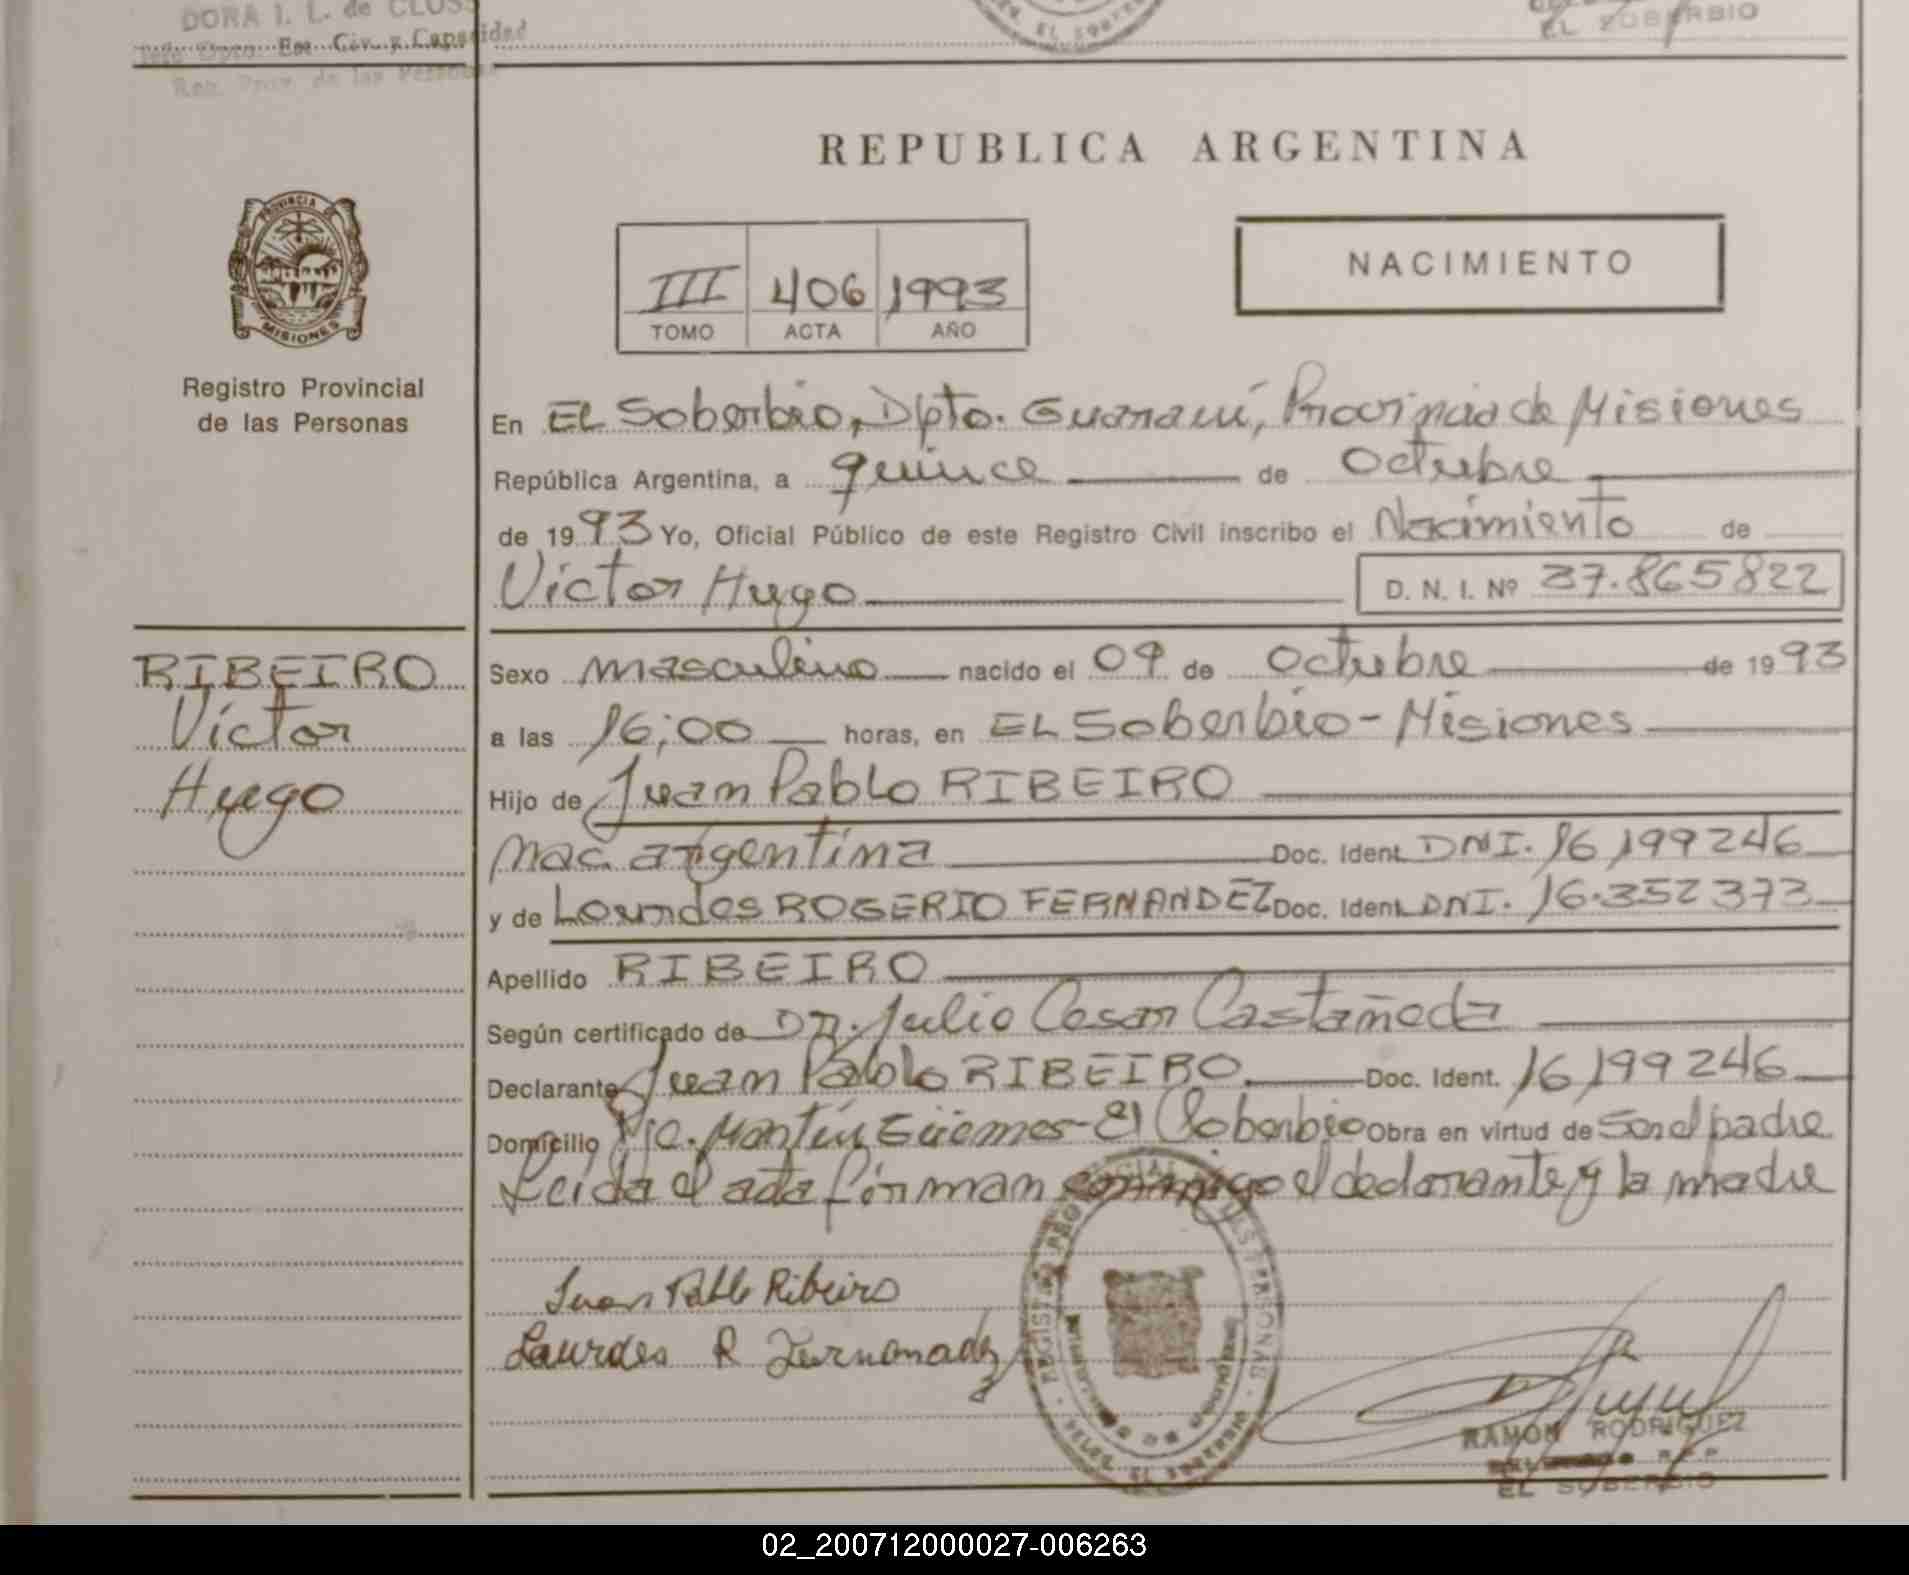 DORA I. L. de CLOSS
Jefe Dpto. Est. Civ. y Capacidad
Reg. Prov. de las Personas
EL SOBERBIO
EL SOBERBIO
REPUBLICA ARGENTINA
PROVINCIA DE
MISIONES
Registro Provincial
de las Personas
III 406 1993
TOMO ACTA AÑO
NACIMIENTO
En El Soberbio, Dpto. Guaraní, Provincia de Misiones
República Argentina, a quince de Octubre
de 1993 Yo, Oficial Público de este Registro Civil inscribo el Nacimiento de
Víctor Hugo D. N. I. Nº 37.865822
RIBEIRO
Víctor
Hugo
Sexo masculino nacido el 09 de Octubre de 1993
a las 16;00 horas, en El Soberbio - Misiones
Hijo de Juan Pablo RIBEIRO
nac. argentina Doc. Ident. DNI. 16,199246
y de Lourdes ROGERIO FERNANDEZ Doc. Ident. DNI. 16.352373
Apellido RIBEIRO
Según certificado de Dr. Julio Cesar Castañeda
Declarante Juan Pablo RIBEIRO Doc. Ident. 16,199246
Domicilio Pje. Martín Güemes - El Soberbio Obra en virtud de Ser el padre
Leída el acta firman conmigo el declarante y la madre
Juan Pablo Ribeiro
Lourdes R Fernandez
RAMON RODRIGUEZ
EL SOBERBIO
02_200712000027-006263